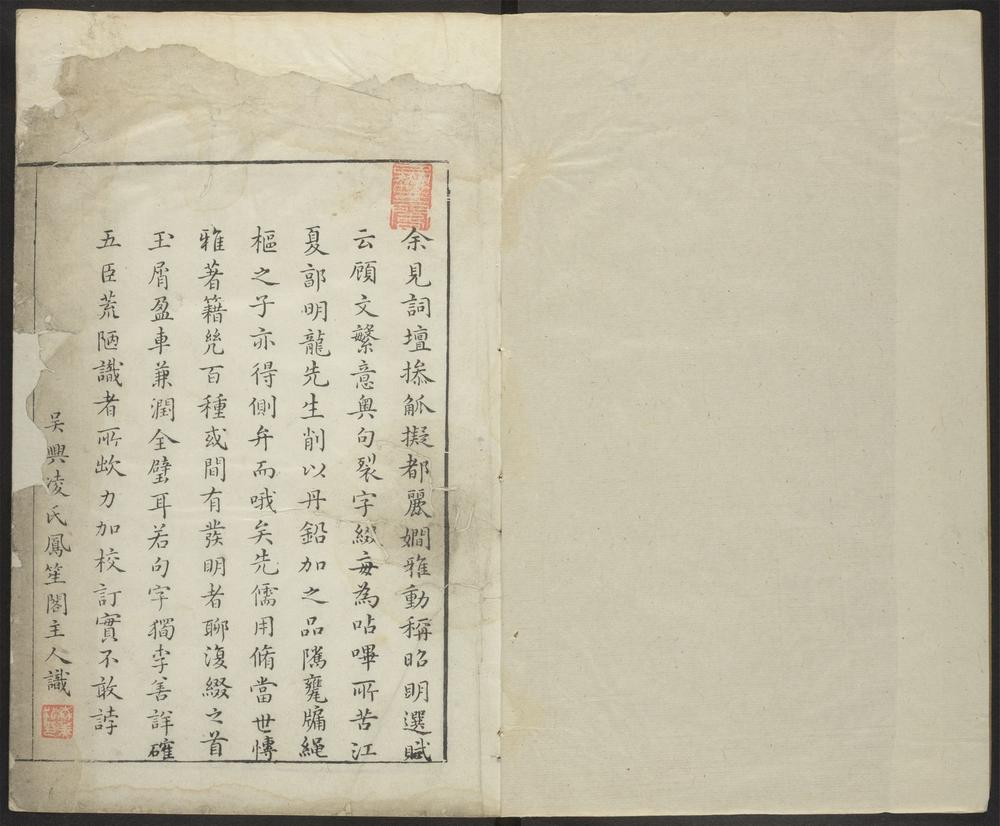 余見詞壇摻觚擬都麗嫺雅動稱昭明選賦
云顧文繁意奧句裂字綴每為呫嗶所苦江
夏郭明龍先生削以丹鉛加之品隲甕牖繩
樞之子亦得側弁而哦矣先儒用脩當世慱
雅著籍㡬百種或間有發明者聊復綴之首
玉屑盈車兼潤全璧耳若句字獨李善詳確
五臣荒陋識者所歎力加校訂實不敢誖
吳興凌氏鳳笙閣主人識